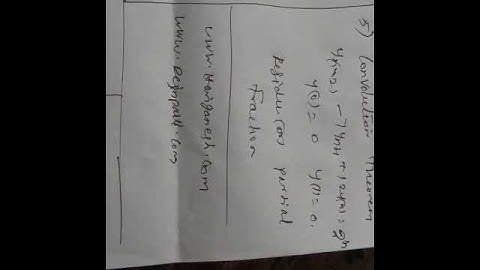 5) Convolution Theorem
y(n+2) - 7y(n+1) + 12y(n) = 2^n
y(0) = 0 y(1) = 0.
Residue (or) partial
fraction
www.Hariganesh.com
www.Rejinpaul.com